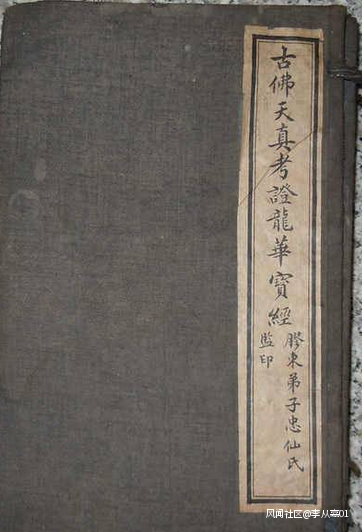 古佛天真考證龍華寶經
膠東弟子忠仙氏
監印
风闻社区@李从嘉01